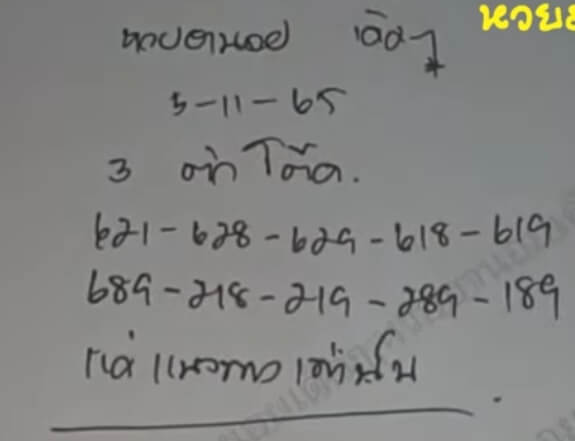 หวย
หวยฮานอย เฉิดๆ
5-11-65
3 ตัว โต๊ด.
621-628-629-618-619
689-218-219-289-189
แค่ แนวทาง เท่านั้น